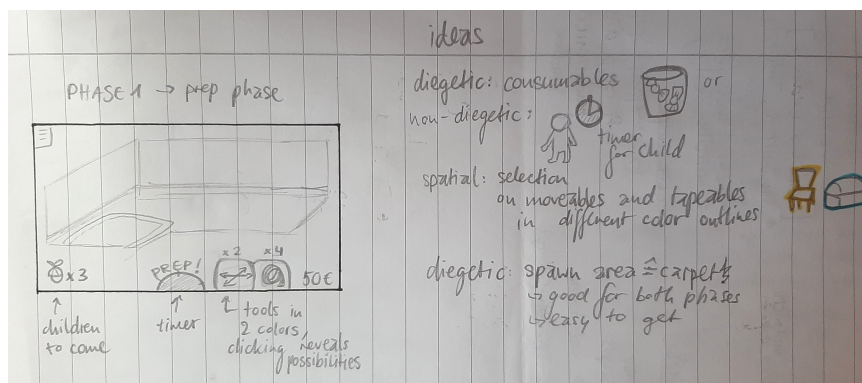 ideas
PHASE 1 → prep phase
x3
PREP!
x2
x4
50€
children
to come
timer
tools in
2 colors,
clicking reveals
possibilities
diegetic: consumables or
non-diegetic:
timer
for child
spatial: selection
on moveables and tapeables
in different color outlines
diegetic: spawn area ≙ carpet
↳ good for both phases
↳ easy to get